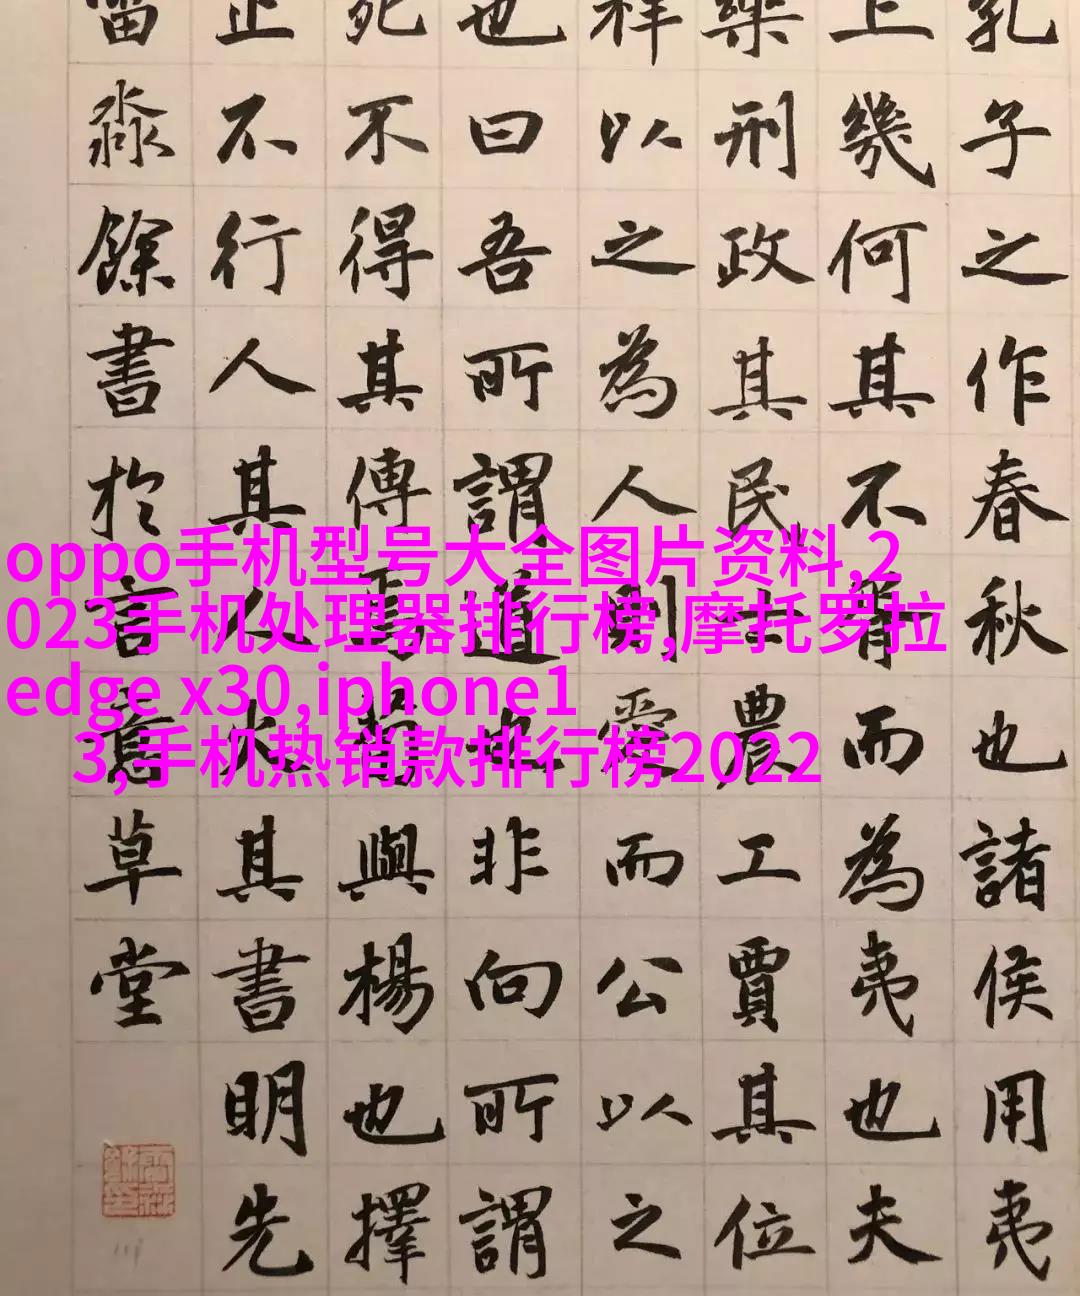 孔子之作春秋也諸侯用夷
上幾何其不胥而為夷也夫
樂刑政其民士農工賈其位
祥以之為人則愛而公以之
也曰吾所謂道也非向所謂
死不得其傳焉荀與楊也擇
止不行人其人火其書明先
淼餘書於言意草堂
oppo手机型号大全图片资料,2
023手机处理器排行榜,摩托罗拉
edge x30,iphone1
3,手机热销款排行榜2022